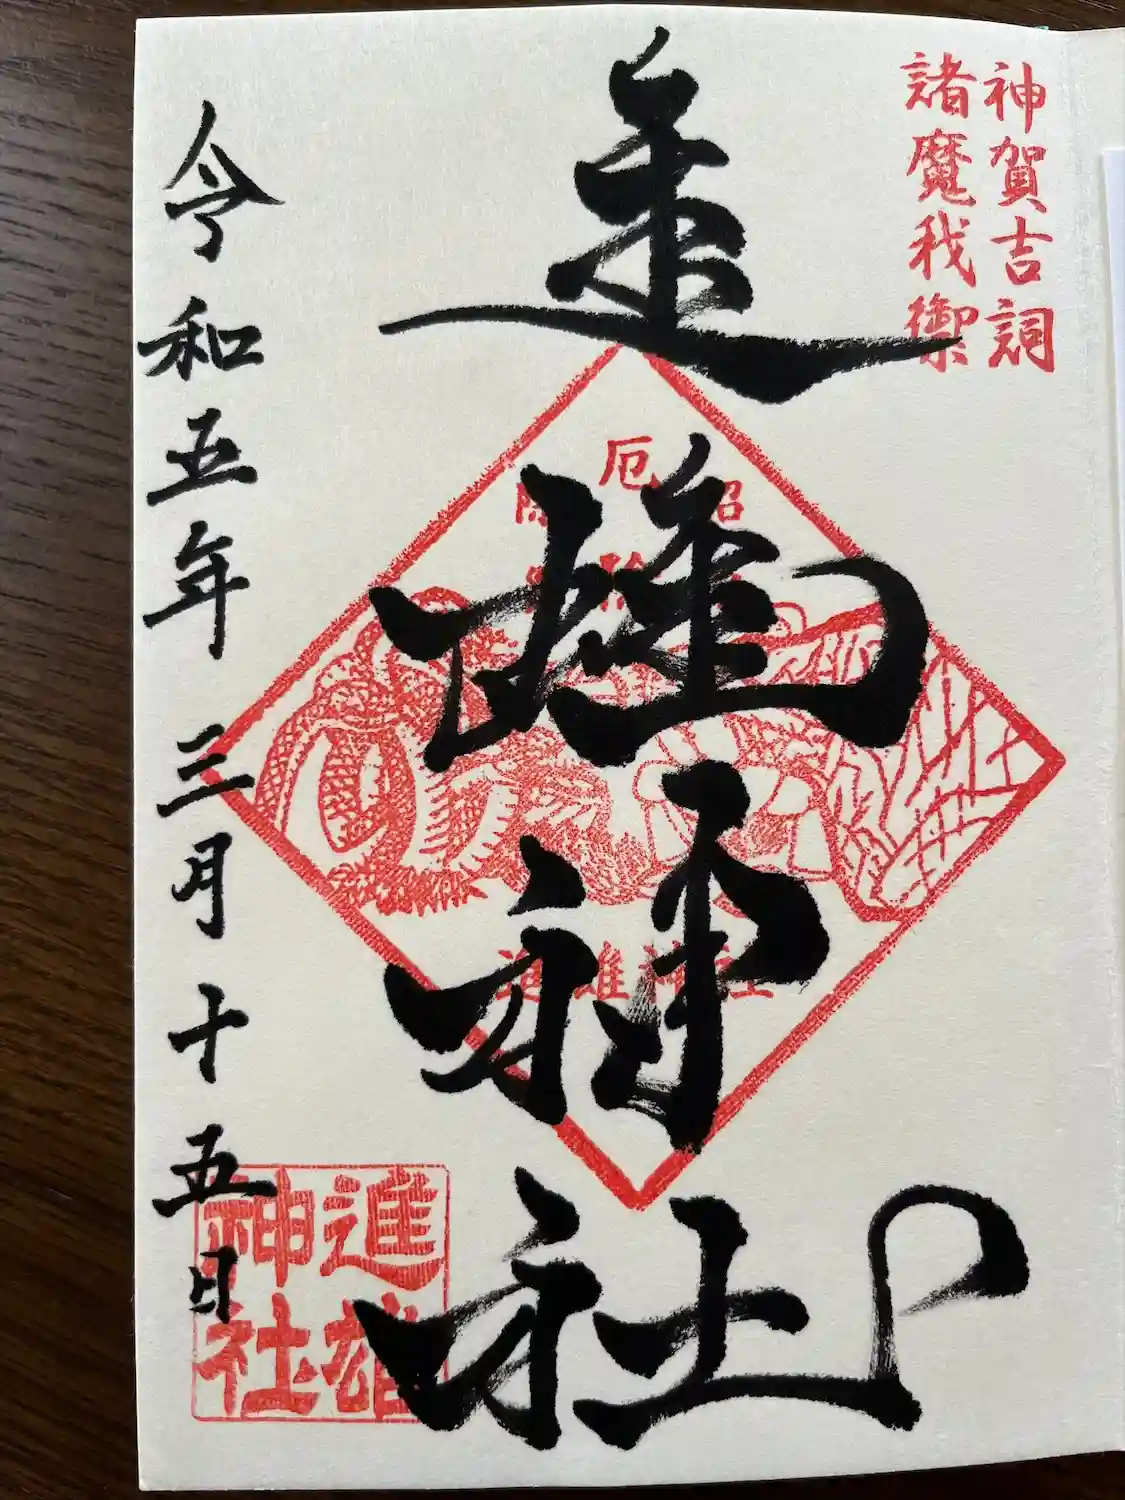 神賀吉詞
諸魔我禦
進雄神社
厄
進雄神社
令和五年三月十五日
進雄
神社